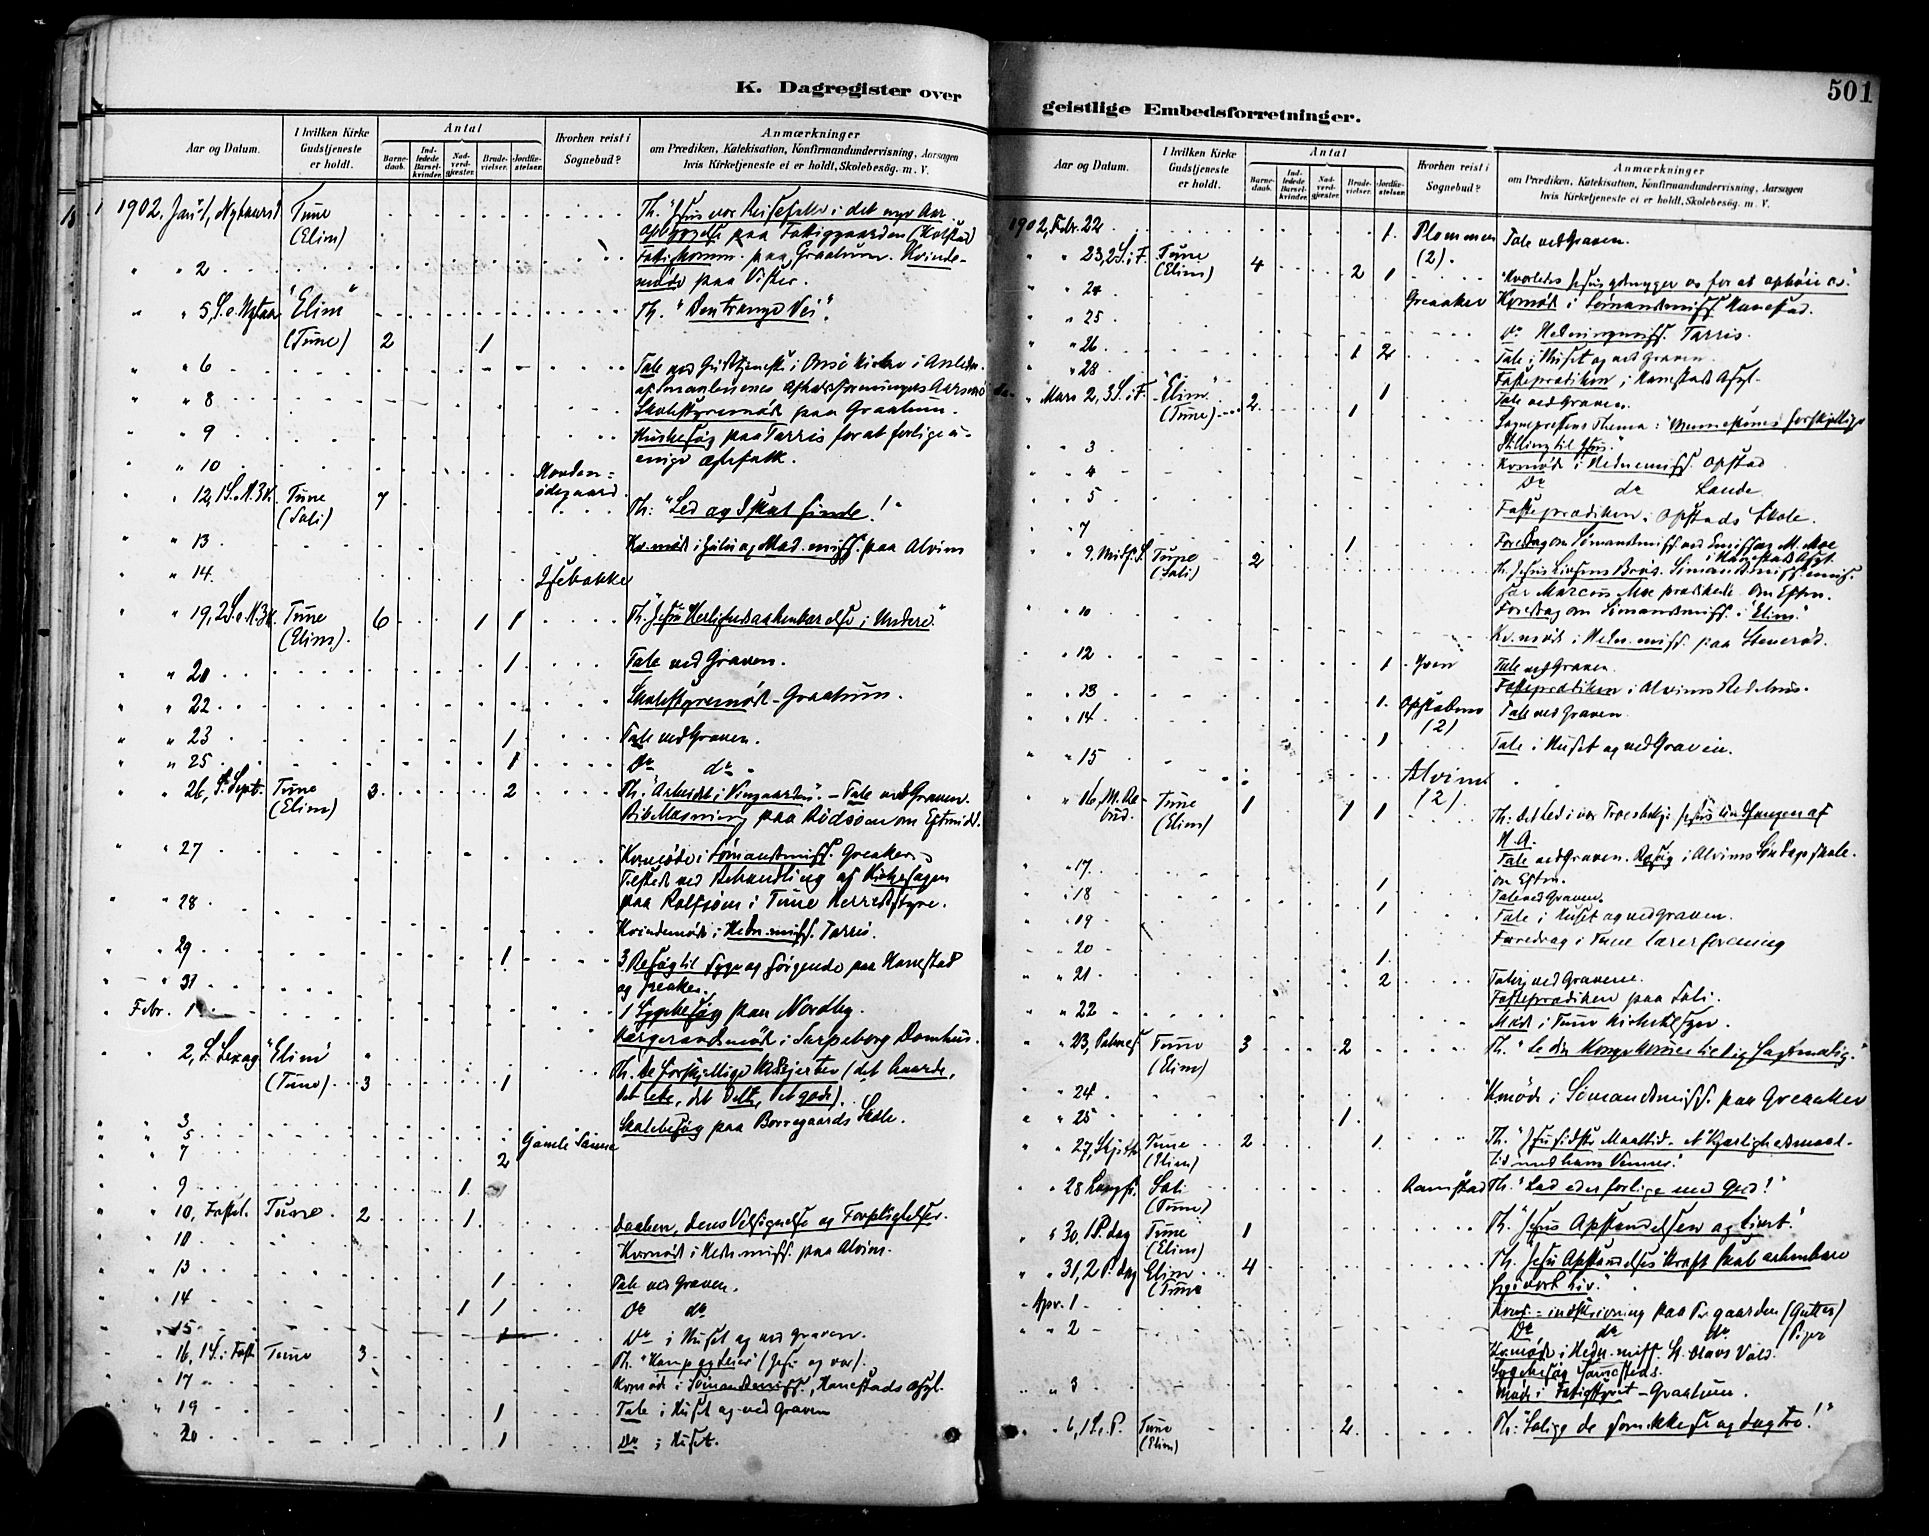 K. Dagregister over
Aar og Datum.
I hvilken Kirke Gudstjeneste er holdt.
Antal
Barnedaab.
Indledede Barselkvinder.
Nadverdgjester.
Brudevielser.
Jordfæstelser.
Hvorhen reist i Sognebud?
Anmærkninger
om Prædiken, Katekisation, Konfirmandundervisning, Aarsagen
hvis Kirketjeneste ei er holdt, Skolebesøg. m. V.
1902, Jan. 1, Nytaarsd. Tune Th. Jesus vor Reisefælle i det nye Aar
(Elim) paa Fattiggaarden (Kalstad)
" " 2 Fattigkomm. paa Graatum. Kvinde-
møde paa Vister.
" " 5, S. e. Nytaar "Elim" Th. "Den trange Vei".
(Tune) 2 1
" " 6 Tale ved Gudstjeneste i Onsø Kirke i Anledn.
af Smaalenenes Afholdsforeningers Aarsmøde
" " 8 Skolestyremøde paa Graatum.
" " 9 Husbesøg paa Tarris for at forlige u-
enige Ægtefolk.
" " 10 Nordenødegaard
" " 12, 1 S. e. H. 3 K. Tune 7 Th: "Led og I skal finde!"
(Soli)
" " 13 Kv.møde i Zulu og Mad. miss. paa Alvim
" " 14 Isebakke
" " 19, 2 S. e. H. 3 K. Tune 6 1 1 Th. "Jesu Herlighedsaabenbarelse i Undere"
(Elim)
" " 20 1 Tale ved Graven.
" " 22 Skolestyremøde - Graatum.
" " 23 1 Tale ved Graven.
" " 25 1 Do do
" " 26, S. Sept. Tune 3 2 Th. "Arbeidet i Vingaarden". - Tale ved Graven.
(Elim) Bibellæsning paa Rødsøen om Eftmidd.
" " 27 Kv.møde i Sømandsmiss. Greaker.
Tilstede ved Behandling af Kirkesagen
" " 28 paa Rolfsøen i Tune Herredstyre.
Kvindemøde i Hedn.miss. Tarris.
" " 29 1 3 Besøg til Syge og sørgende paa Hannestad
" " 31 og Greaker.
" Febr. 1 1 Sygebesøg paa Nordby.
Værgeraadsmøde i Sarpsborg Domhus.
" " 2, S. Sexag. "Elim" Th. De forskjellige Hjerter (det haarde,
(Tune) 3 1 det lette, det delte, det gode).
" " 3 Skolebesøg paa Borregaards Skole.
" " 5 Gamle Sanne
" " 7 2
" " 9 1
" " 10, Fastel. Tune 2 1 Daaben, dens Velsignelse og Forpligtelser.
" " 10 Kv.møde i Hedn.miss. paa Alvim.
" " 13 1 Tale ved Graven.
" " 14 1 1 Do do
" " 15 1 Do i Huset og ved Graven.
" " 16, 1 S. i Faste Tune 3 Th. "Kamp og Seier" (Jesu og vor).
" " 17 Kv.møde i Sømandsmiss., Hannestads Asyl.
" " 19 1 Tale i Huset og ved Graven
" " 20 1 Do i Huset.
geistlige Embedsforretninger.
501
Aar og Datum.
I hvilken Kirke Gudstjeneste er holdt.
Antal
Barnedaab.
Indledede Barselkvinder.
Nadverdgjester.
Brudevielser.
Jordfæstelser.
Hvorhen reist i Sognebud?
Anmærkninger
om Prædiken, Katekisation, Konfirmandundervisning, Aarsagen
hvis Kirketjeneste ei er holdt, Skolebesøg. m. V.
1902, Febr. 22 1 Plommen Tale ved Graven.
" " 23, 2 S. i F. Tune 4 2 1 (2)
(Elim) "Hvorledes Jesus ydmyger os for at ophøie os"
" " 24 Greaaker Kv.møde i Sømandsmiss. Hannestad.
" " 25 Do Hedningmiss. Tarris.
" " 26 1 2 Tale i Huset og ved Graven.
" " 28 Fasteprædiken i Hannestads Asyl.
" Mars 2, 3 S. i F. "Elim" 2 1 Tale ved Graven.
(Tune) 1 Sognepræstens Thema: "Menneskenes forskjellige
" " 3 Stilling til Jesus"
" " 4 Kv.møde i Hedn.miss. Opstad
" " 5 Do do Lande
" " 7 Fasteprædiken i Opstads Skole.
1 Foredrag om Sømandsmiss. ved Emissær M. Moe
" " 9, Midf. S. Tune 2 i Hannestads Asyl.
(Soli) Th. Jesus Livsens Brød. Sømandsmiss. emis.
Marcus Moe prædikede. Om Eftm.
" " 10 Foredrag om Sømandsmiss. i "Elim".
Kv.møde i Hedn.miss. paa Stenerød.
" " 12 1 Yven Tale ved Graven.
Fasteprædiken i Alvims Bedehus.
" " 13 1 Opstadmo Tale ved Graven.
" " 14 (2)
1 Tale i Huset og ved Graven.
" " 15 Alvim
" " 16, M. Bebud. Tune 1 1 1 (2) Th: Det Led i vor Troesbekj.: Jesus undfangen af
(Elim) H. A.
" " 17 Tale ved Graven. Besøg i Alvims Søndagsskole.
om Eftm.
" " 18 1 Tale ved Graven.
" " 19 1 Tale i Huset og ved Graven.
" " 20 Foredrag i Tune Lærerforening
" " 21 1
2 Taler ved Gravene.
" " 22 Fasteprædiken paa Soli.
Møde i Tune Kirketilsyn.
" " 23, Palmes. Tune 3 2 Th. "Se din Konge kommer til dig sagtmodig."
(Elim)
" " 24 Kv.møde i Sømandsmiss. paa Greaaker
" " 25 1
" " 27, Skjærtd. Tune 2 1 Th. "Jesu sidste Maaltid - et Kjærlighedsmaal-
(Elim) tid med hans Venner".
" " 28 Langfr. Soli Ramstad Th. "Lad eder forlige med Gud!"
(Tune)
" " 30, 1 P. dag Tune 1 Th. "Jesus Opstandelsen og Livet."
(Elim)
" " 31, 2 P. dag Elim 4 Th. Jesu Opstandelses Kraft skal aabenbare
(Tune sig i vort Liv."
" Apr. 1 Konf.-indskrivning paa Pr.gaarden (Gutter)
" " 2 Do do do (Piger
Kv.møde i Hedn. miss. St. Olavs Vold.
Sygebesøg sammesteds.
" " 3 Møde i Fattigstyret - Graatum.
" " 6, 1 S. e. P. Tune 2 Th: "Salige de som ikke se og dog tro!"
(Elim)